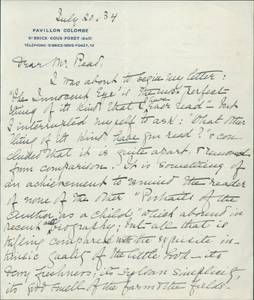 July 20. 34
PAVILLON COLOMBE
ST BRICE-SOUS-FORÊT (S&O)
TÉLÉPHONE: ST BRICE-SOUS-FORÊT, 12
Dear Mr. Read,
I was about to begin my letter:
"The Innocent Eye is the most perfect
thing of its kind that I ever read" — but
I interrupted myself to ask: "What other
thing of its kind have you read?" & con-
cluded that it is quite apart & removed
from comparison. It is something of
an achievement to remind the reader
of none of the other "Portraits of the
Author as a child" which abound in
recent biography; but all that is
compared with the exquisite in-
trinsic quality of the little book — its
freshness, its simplicity,
its good smell of the farm & the fields.